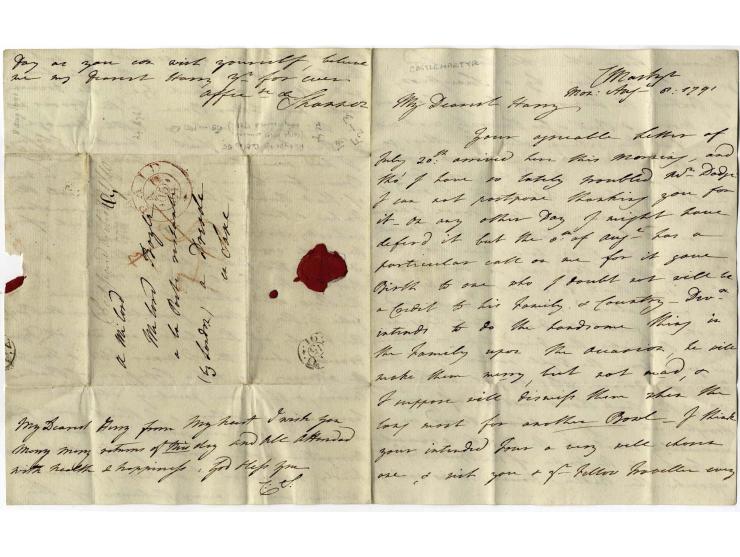 CASTLEMARTYR
C Martyr
Mon: Aug 8: 1791
My Dearest Harry
Your agreable Letter of
July 20th arrived here this Morning, and
tho' I have so lately troubled
I can not postpone thanking you for
it - On any other Day I might have
defer'd it but the 8th of Augt has a
particular call on me for it gave
Birth to one who I doubt not will be
a Credit to his Family & Country -
intends to do the handsome thing in
the Family upon the occasion, he will
make them merry, but not mad, &
I suppose will dismiss them when the
long most for another Bowl - I think
your intended Tour a very well chosen
one, & wish you & yr Fellow Traveller every
Day as you can wish yourself, believe
me my Dearest Harry yrs for ever
Affte
Shannon
PAID
a Milord
Milord Boyle
a la Poste restante
a Dresde
en Saxe
My Dearest Harry from My heart I wish you
Many many returns of this day and all attended
with health & happiness, God bless you
C: S.